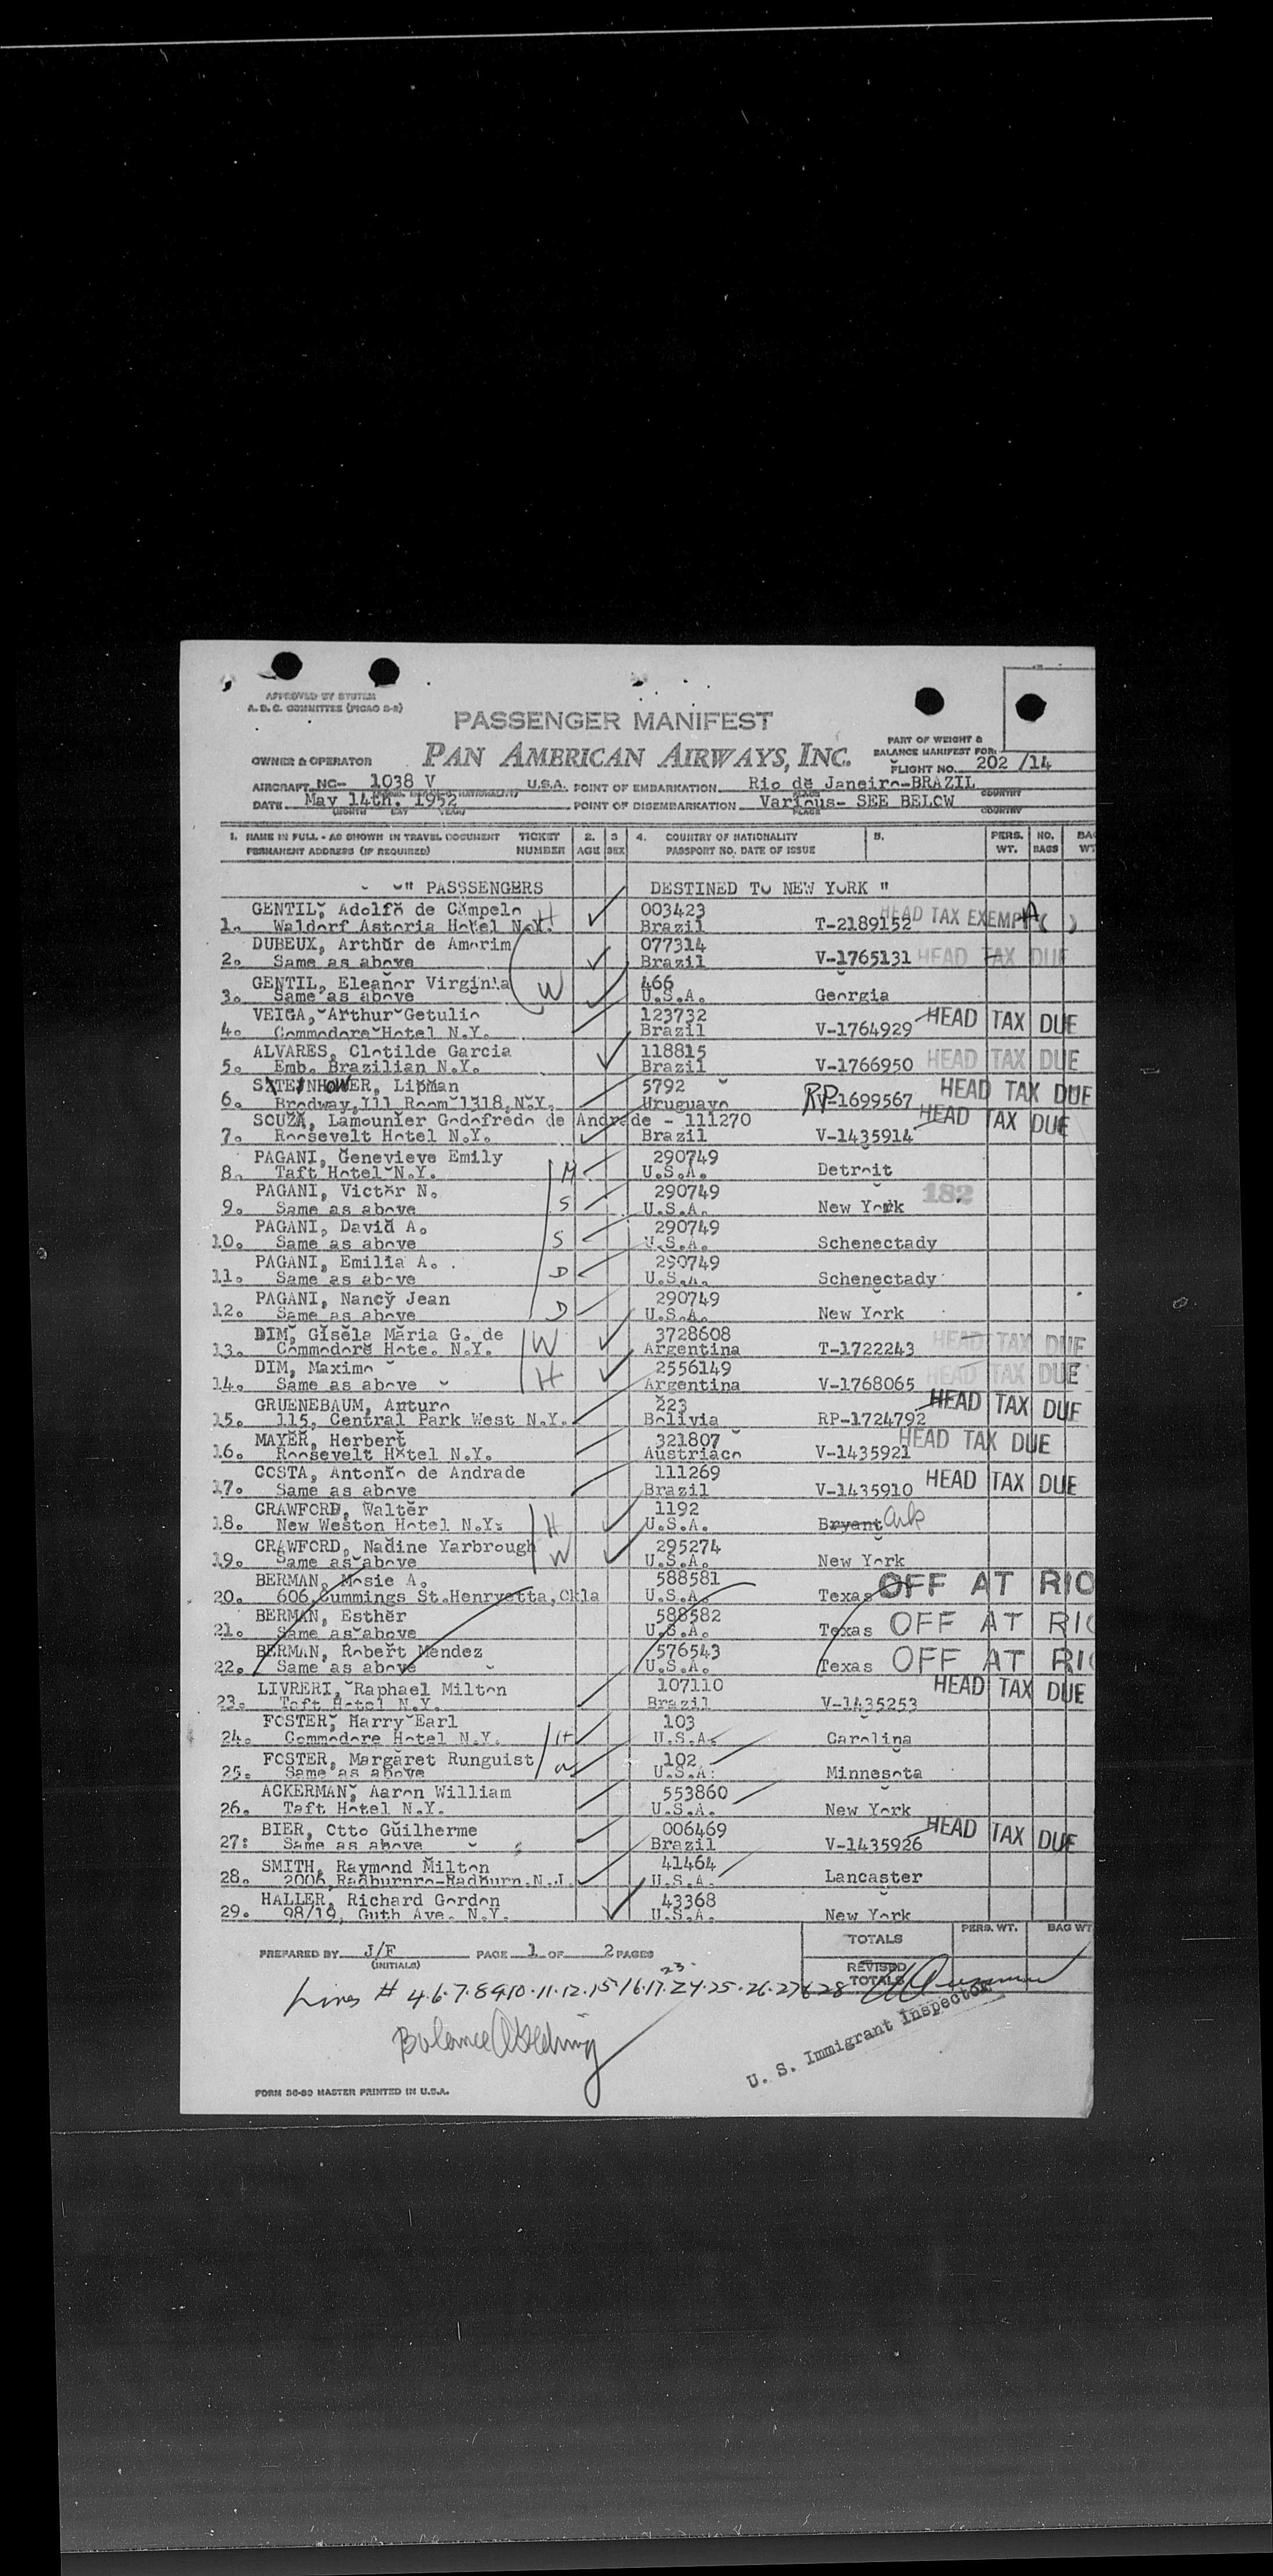 APPROVED BY SYSTEM
A. D. C. COMMITTEE (PICAO 2-2)
PASSENGER MANIFEST
PART OF WEIGHT &
BALANCE MANIFEST FOR:
OWNER & OPERATOR PAN AMERICAN AIRWAYS, INC.
FLIGHT NO. 202 /14
AIRCRAFT NC- 1038 V U.S.A. POINT OF EMBARKATION Rio de Janeiro-BRAZIL
PLACE COUNTRY
DATE May 14th. 1952 POINT OF DISEMBARKATION Various- SEE BELOW
(MONTH DAY YEAR) PLACE COUNTRY
1. NAME IN FULL - AS SHOWN IN TRAVEL DOCUMENT TICKET 2. 3 4. COUNTRY OF NATIONALITY 5. PERS. NO. BAG
PERMANENT ADDRESS (IF REQUIRED) NUMBER AGE SEX PASSPORT NO. DATE OF ISSUE WT. BAGS WT
" PASSSENGERS DESTINED TO NEW YORK "
GENTIL, Adolfo de Campelo H 003423 HEAD TAX EXEMPT A( )
1. Waldorf Astoria Hotel N.Y. Brazil T-2189152
DUBEUX, Arthur de Amorim 077314
2. Same as above Brazil V-1765131 HEAD TAX DUE
GENTIL, Eleanor Virginia W 466
3. Same as above U.S.A. Georgia
VEIGA, Arthur Getulio 123732 HEAD TAX DUE
4. Commodore Hotel N.Y. Brazil V-1764929
ALVARES, Clotilde Garcia 118815
5. Emb. Brazilian N.Y. Brazil V-1766950 HEAD TAX DUE
SZTEINHOWER, Lipman 5792 HEAD TAX DUE
6. Brodway,111 Room 1318,N.Y. Uruguayo RP-1699567
SOUZA, Lamounier Godofredo de Andrade - 111270 HEAD TAX DUE
7. Roosevelt Hotel N.Y. Brazil V-1435914
PAGANI, Genevieve Emily 290749
8. Taft Hotel N.Y. M U.S.A. Detroit
PAGANI, Victor N. 290749 182
9. Same as above S U.S.A. New York
PAGANI, David A. 290749
10. Same as above S U.S.A. Schenectady
PAGANI, Emilia A. 290749
11. Same as above D U.S.A. Schenectady
PAGANI, Nancy Jean 290749
12. Same as above D U.S.A. New York
DIM, Gisela Maria G. de W 3728608
13. Commodore Hote. N.Y. Argentina T-1722243 HEAD TAX DUE
DIM, Maximo 2556149
14. Same as above H Argentina V-1768065 HEAD TAX DUE
GRUENEBAUM, Arturo 223 HEAD TAX DUE
15. 115, Central Park West N.Y. Bolivia RP-1724792
MAYER, Herbert 321807 HEAD TAX DUE
16. Roosevelt Hotel N.Y. Austriaco V-1435921
COSTA, Antonio de Andrade 111269 HEAD TAX DUE
17. Same as above Brazil V-1435910
CRAWFORD, Walter H 1192
18. New Weston Hotel N.Y: U.S.A. Bryant Ark
CRAWFORD, Nadine Yarbrough W 295274
19. Same as above U.S.A. New York
BERMAN, Mosie A. 588581 OFF AT RIO
20. 606,Cummings St.Henryetta,Okla U.S.A. Texas
BERMAN, Esther 588582 OFF AT RIO
21. Same as above U.S.A. Texas
BERMAN, Robert Mendez 576543 OFF AT RIO
22. Same as above U.S.A. Texas
LIVRERI, Raphael Milton 107110 HEAD TAX DUE
23. Taft Hotel N.Y. Brazil V-1435253
FOSTER, Harry Earl 103
24. Commodore Hotel N.Y. H U.S.A. Carolina
FOSTER, Margaret Runguist 102
25. Same as above W U.S.A: Minnesota
ACKERMAN, Aaron William 553860
26. Taft Hotel N.Y. U.S.A. New York
BIER, Otto Guilherme 006469 HEAD TAX DUE
27: Same as above Brazil V-1435926
SMITH, Raymond Milton 41464
28. 2006,Radburnro-Radburn.N.J. U.S.A. Lancaster
HALLER, Richard Gordon 43368
29. 98/19, Guth Ave. N.Y. U.S.A. New York
TOTALS PERS. WT. BAG WT
PREPARED BY J/F PAGE 1 OF 2 PAGES
(INITIALS)
REVISED
TOTALS
23
Lines # 4.6.7.8.9.10.11.12.15.16.17.24.25.26.27&28
Balance
U. S. Immigrant Inspector
FORM 36-80 MASTER PRINTED IN U.S.A.